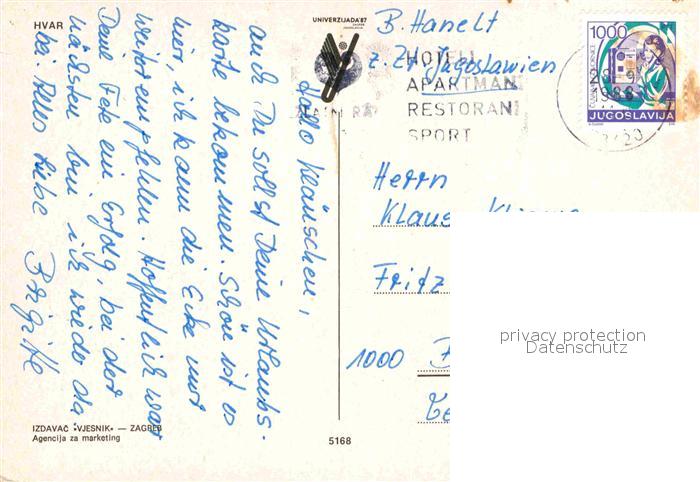 HVAR
UNIVERZIJADA '87
ZAGREB
JUGOSLAVIJA
B. Hanelt
z. Zt. Jugoslawien
HOTELI
APARTMANI
RESTORANI
SPORT
1000
JUGOSLAVIJA
Hallo Kläuschen,
auch Du sollst Deine Urlaubs-
karte bekommen. Schön ist es
hier, ich kann die Ecke nur
weiterempfehlen. Hoffentlich war
Deine Fete ein Erfolg, bei der
nächsten bin ich wieder da
bei. Alles Liebe Brigitte
Herrn
Klaus
Fritz
1000
privacy protection
Datenschutz
IZDAVAČ "VJESNIK" — ZAGREB
Agencija za marketing
5168